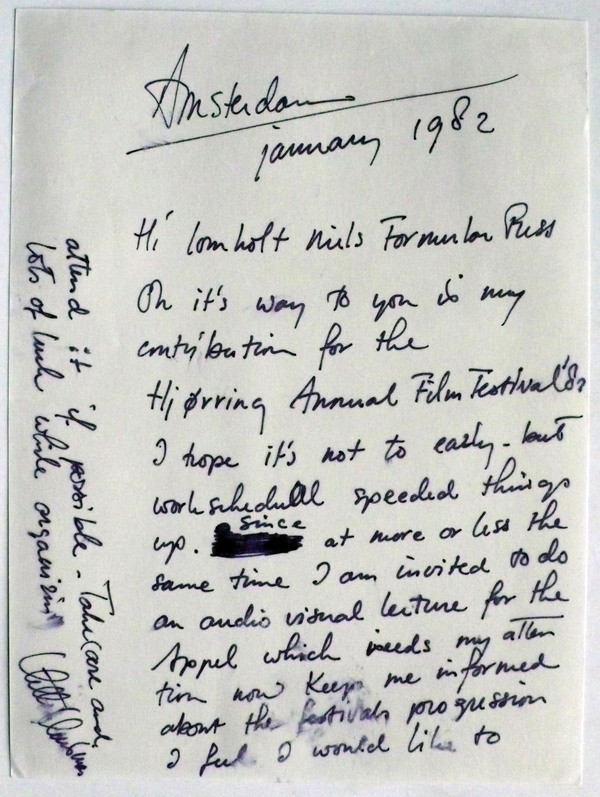 Amsterdam
january 1982
Hi lomholt niels Formular Press
On it's way to you is my
contribution for the
Hjørring Annual Film Festival '82
I hope it's not to early - but
workschedull speeded things
up. since at more or less the
same time I am invited to do
an audio visual lecture for the
Appel which needs my atten
tion now Keep me informed
about the festivals progression
I feel I would like to
attend it if possible - Take care and
lots of luck while organising